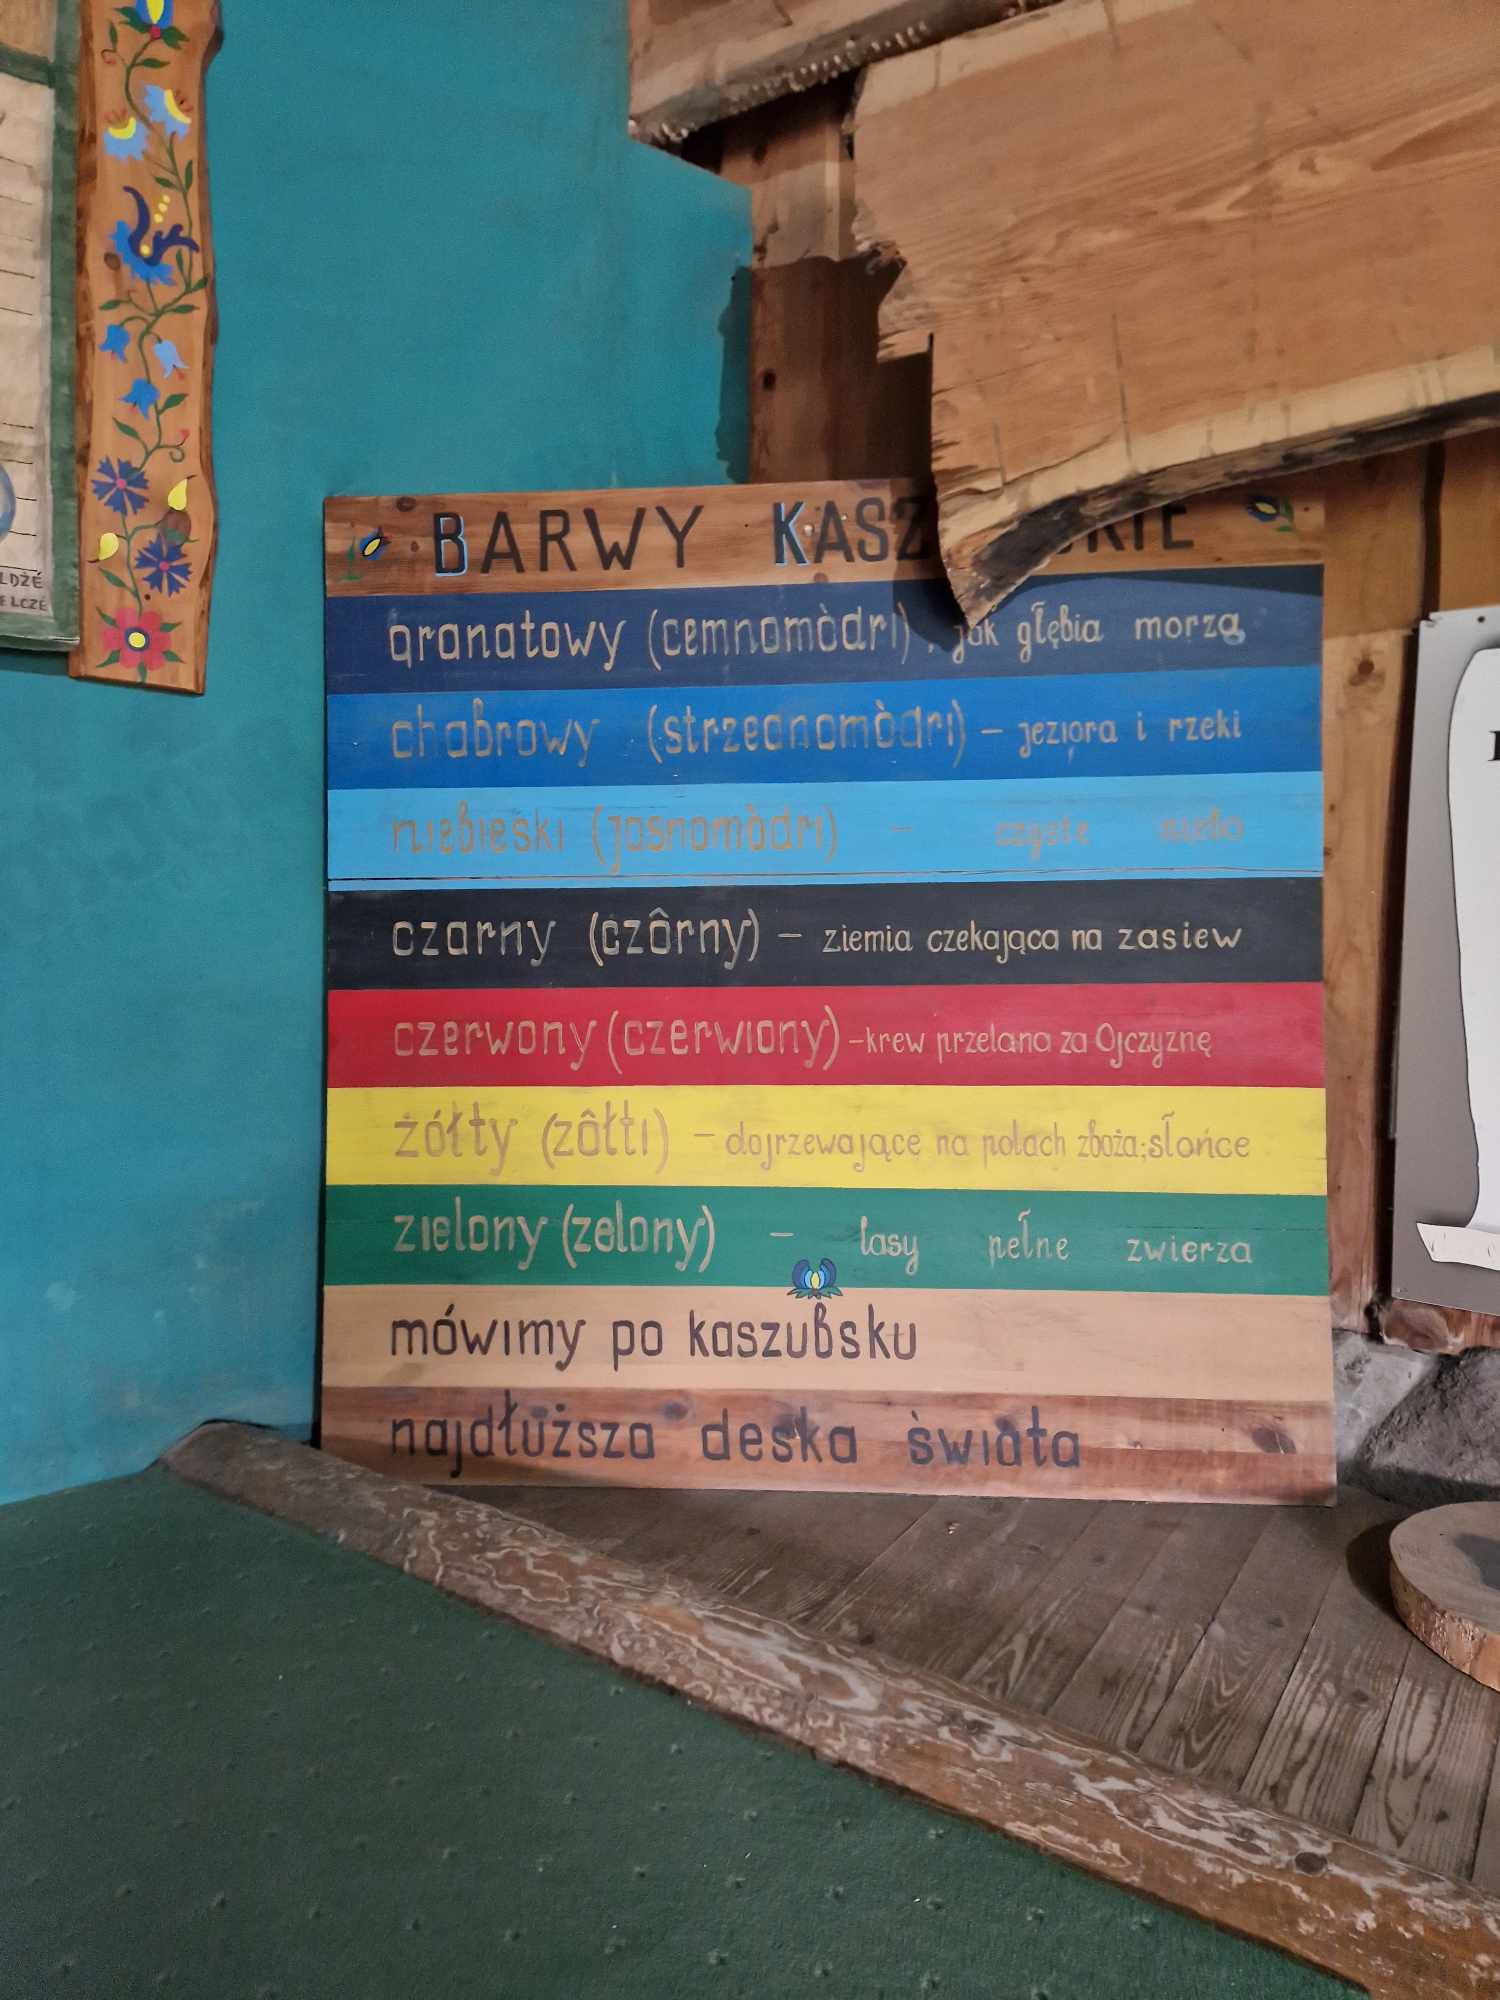 LDŻÉ
ELCZÉ
BARWY KASZ KIE
granatowy (cemnomòdri) , jak głębia morza
chabrowy (strzednomòdri) – jeziora i rzeki
niebieski (jasnomòdri) – czyste niebo
czarny (czôrny) – ziemia czekająca na zasiew
czerwony (czerwiony) – krew przelana za Ojczyznę
żółty (zôłti) – dojrzewające na polach zboża; słońce
zielony (zelony) – lasy pełne zwierza
mówimy po kaszubsku
najdłuższa deska świata